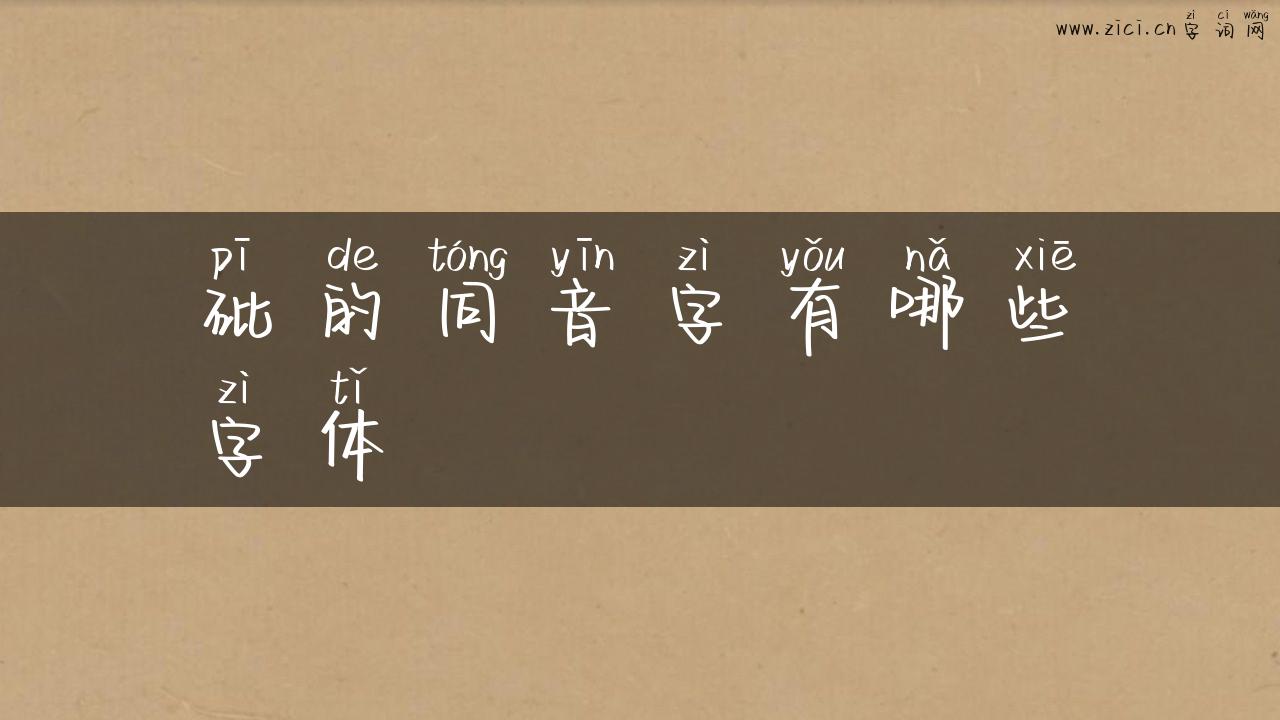 zì cí wǎng
www.zici.cn 字词网
pī de tóng yīn zì yǒu nǎ xiē
砒的同音字有哪些
zì tǐ
字体